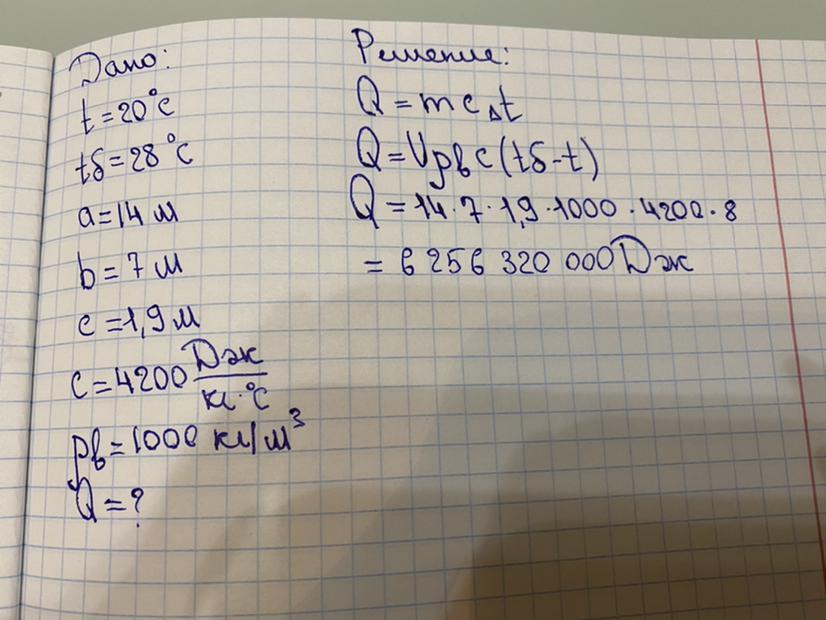 Дано:
t=20°c
tб=28°c
a=14 м
b=7 м
c=1,9 м
c=4200 Дж/кг·°C
ρв=1000 кг/м³
Q=?
Решение:
Q=mcΔt
Q=Vρвc(tб-t)
Q=14·7·1,9·1000·4200·8
=6 256 320 000 Дж